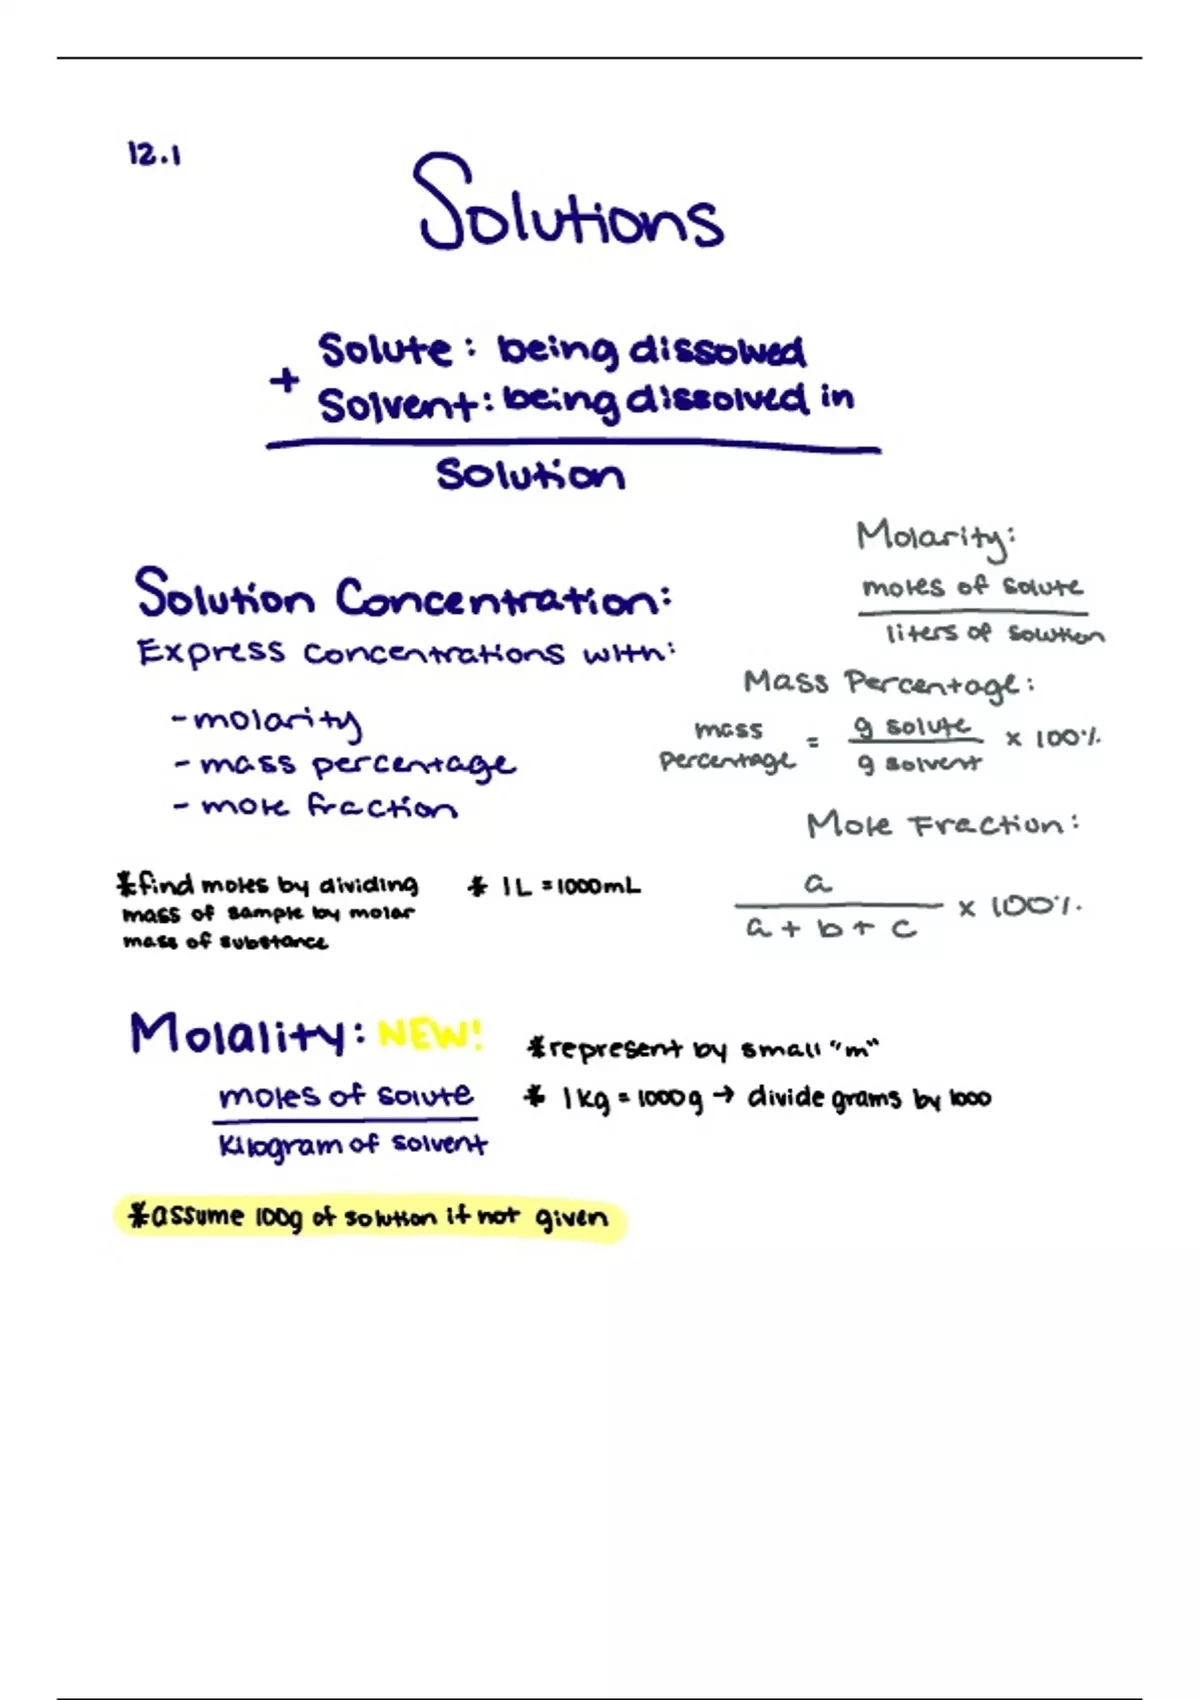 12.1
Solutions
Solute: being dissolved
+
Solvent: being dissolved in
Solution
Solution Concentration:
Express concentrations with:
- molarity
- mass percentage
- mole fraction
Molarity:
moles of solute
liters of solution
Mass Percentage:
mass percentage = g solute / g solvent x 100%
Mole Fraction:
a
a + b + c x 100%
*find moles by dividing
mass of sample by molar
mass of substance
* 1L = 1000mL
Molality: NEW!
moles of solute
kilogram of solvent
*represent by small "m"
* 1kg = 1000g → divide grams by 1000
*assume 100g of solution if not given